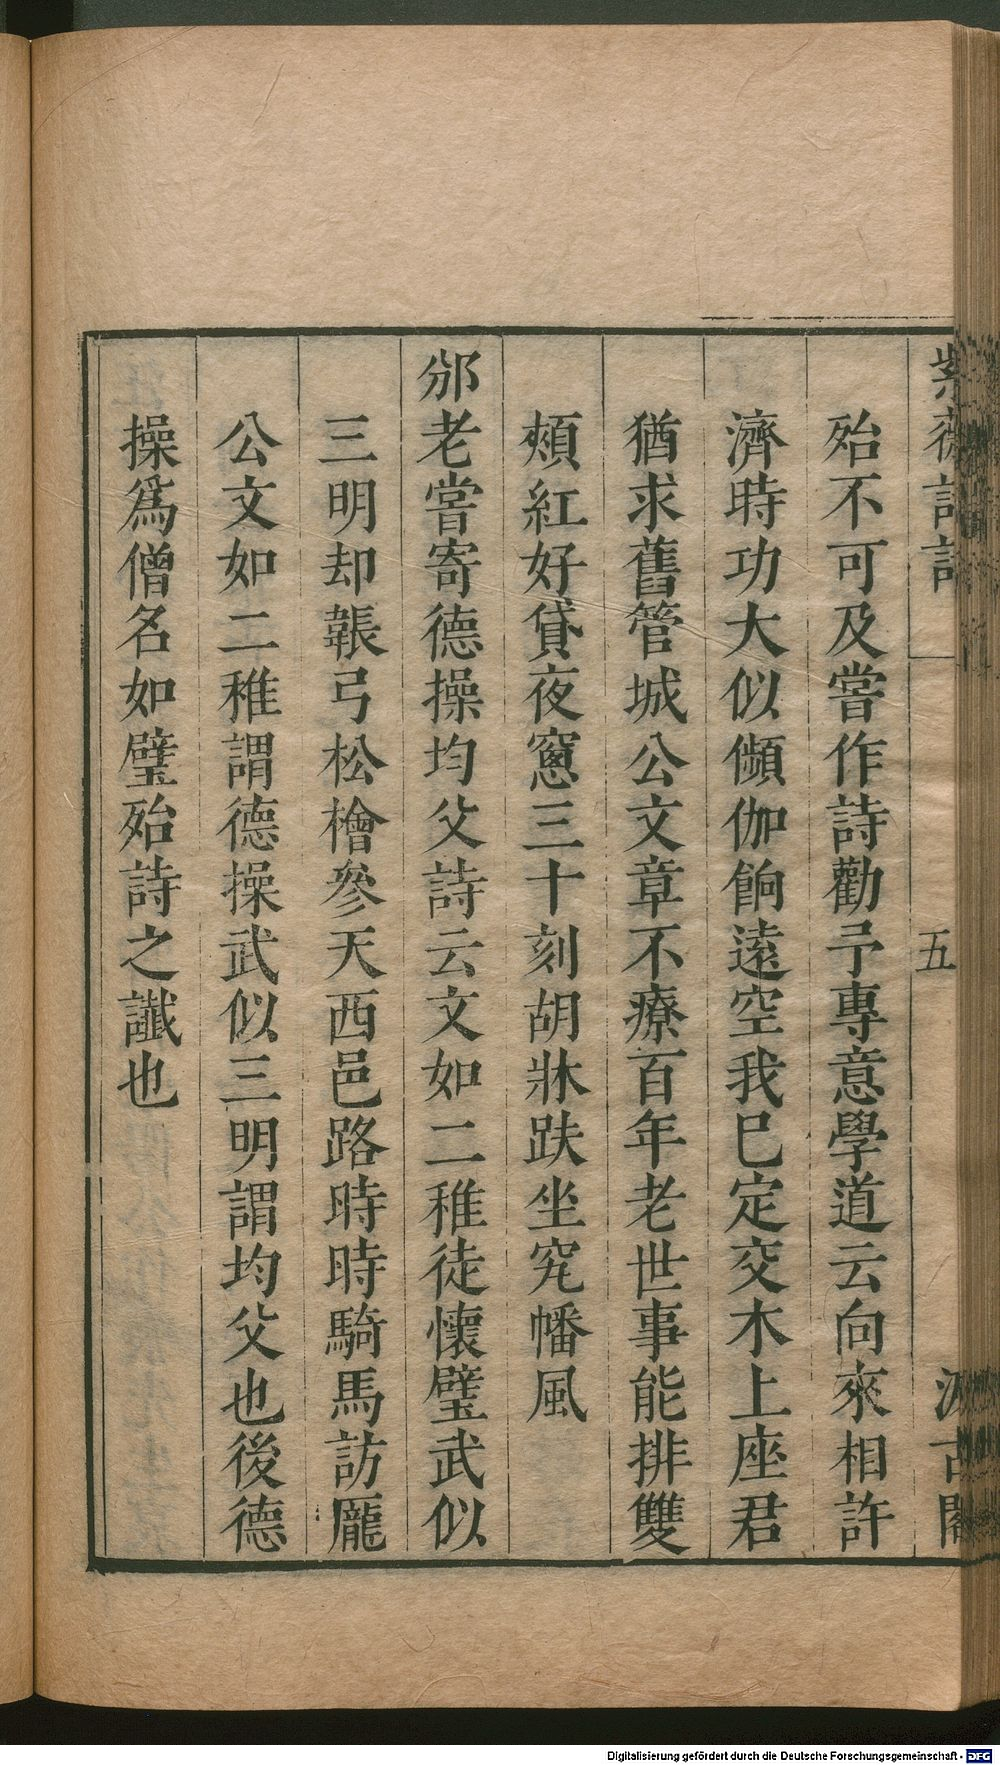 紫薇詩話 五 汲古閣
殆不可及嘗作詩勸予專意學道云向來相許
濟時功大似傾伽餉遠空我已定交木上座君
猶求舊管城公文章不療百年老世事能排雙
頰紅好貸夜窻三十刻胡牀趺坐究幡風
邠老嘗寄德操均父詩云文如二稚徒懷璧武似
三明却韔弓松檜參天西邑路時時騎馬訪龐
公文如二稚謂德操武似三明謂均父也後德
操爲僧名如璧殆詩之讖也
Digitalisierung gefördert durch die Deutsche Forschungsgemeinschaft - DFG